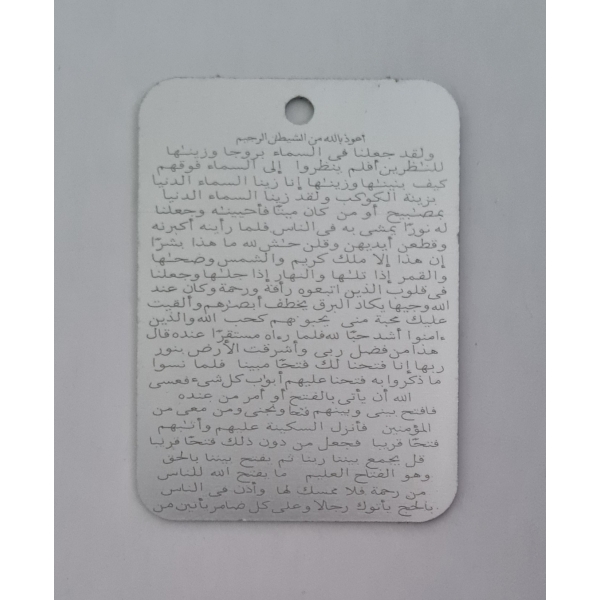 أعوذ بالله من الشيطان الرجيم
ولقد جعلنا في السماء بروجا وزينٰها
للنٰظرين أفلم ينظروا إلى السماء فوقهم
كيف بنينٰها وزينٰها إنا زينا السماء الدنيا
بزينة الكوكب ولقد زينا السماء الدنيا
بمصٰبيح أو من كان ميتا فأحيينٰه وجعلنا
له نورًا يمشي به في الناس فلما رأينه أكبرنه
وقطعن أيديهن وقلن حٰش لله ما هذا بشرًا
إن هذا إلا ملك كريم والشمس وضحٰها
والقمر إذا تلٰها والنهار إذا جلٰها وجعلنا
في قلوب الذين اتبعوه رأفة ورحمة وكان عند
الله وجيها يكاد البرق يخطف أبصٰرهم وألقيت
عليك محبة مني يحبونهم كحب الله والذين
ءامنوا أشد حبًا لله فلما رءاه مستقرًا عنده قال
هذا من فضل ربي وأشرقت الأرض بنور
ربها إنا فتحنا لك فتحًا مبينا فلما نسوا
ما ذكروا به فتحنا عليهم أبواب كل شيء فعسى
الله أن يأتي بالفتح أو أمر من عنده
فافتح بيني وبينهم فتحا ونجني ومن معي من
المؤمنين فأنزل السكينة عليهم وأثٰبهم
فتحًا قريبا فجعل من دون ذلك فتحًا قريبا
قل يجمع بيننا ربنا ثم يفتح بيننا بالحق
وهو الفتاح العليم ما يفتح الله للناس
من رحمة فلا ممسك لها وأذن في الناس
بالحج يأتوك رجالا وعلى كل ضامر يأتين من